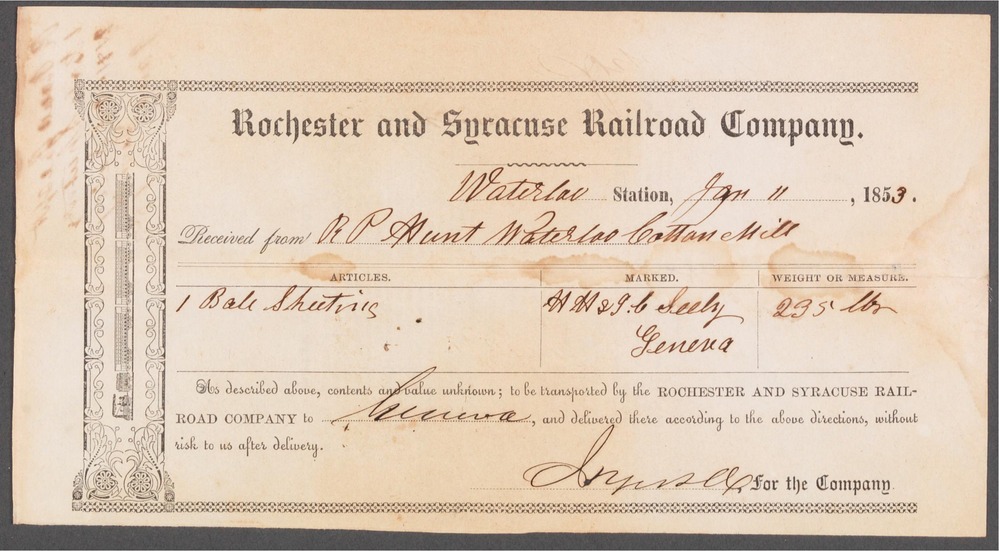 Rochester and Syracuse Railroad Company.
Waterloo Station, Jan 11, 1853.
Received from R P Hunt Waterloo Cotton Mill
ARTICLES. MARKED. WEIGHT OR MEASURE.
1 Bale Sheeting H H & J. C Seely 235 lbs
Geneva
As described above, contents and value unknown; to be transported by the ROCHESTER AND SYRACUSE RAIL-
ROAD COMPANY to Geneva, and delivered there according to the above directions, without
risk to us after delivery.
For the Company